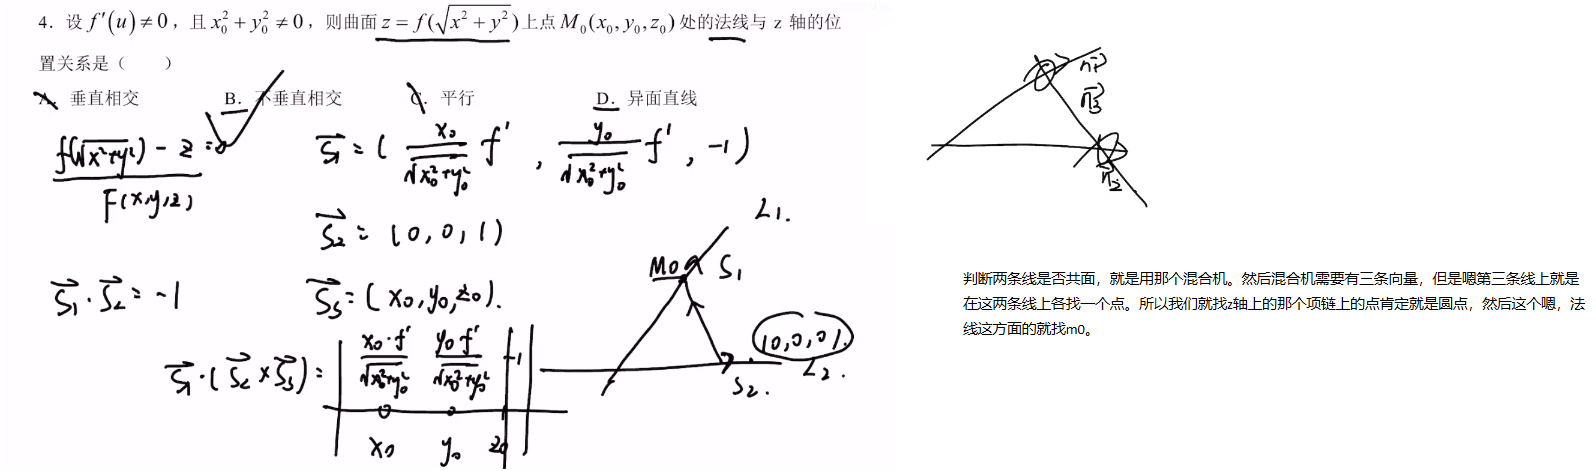 4. 设 f′(u)≠0，且 x₀²+y₀²≠0，则曲面 z=f(√(x²+y²)) 上点 M₀(x₀,y₀,z₀) 处的法线与 z 轴的位
置关系是（　　）
A. 垂直相交　B. 不垂直相交　C. 平行　D. 异面直线
f(√(x²+y²)) − z = 0
F(x,y,z)
S₁ = ( x₀/√(x₀²+y₀²) f′ , y₀/√(x₀²+y₀²) f′ , −1 )
S₂ = (0, 0, 1)
S₁·S₂ = −1
S₃ = (x₀,y₀,z₀).
S₁·(S₂×S₃) =
x₀·f′/√(x₀²+y₀²)　y₀f′/√(x₀²+y₀²)　−1
0　0　1
x₀　y₀　z₀
L₁.
M₀
S₁
(0,0,0).
S₂.
L₂.
n₁
n₃
n₂
判断两条线是否共面，就是用那个混合机。然后混合机需要有三条向量，但是嗯第三条线上就是
在这两条线上各找一个点。所以我们就找z轴上的那个项链上的点肯定就是圆点，然后这个嗯，法
线这方面的就找m0。